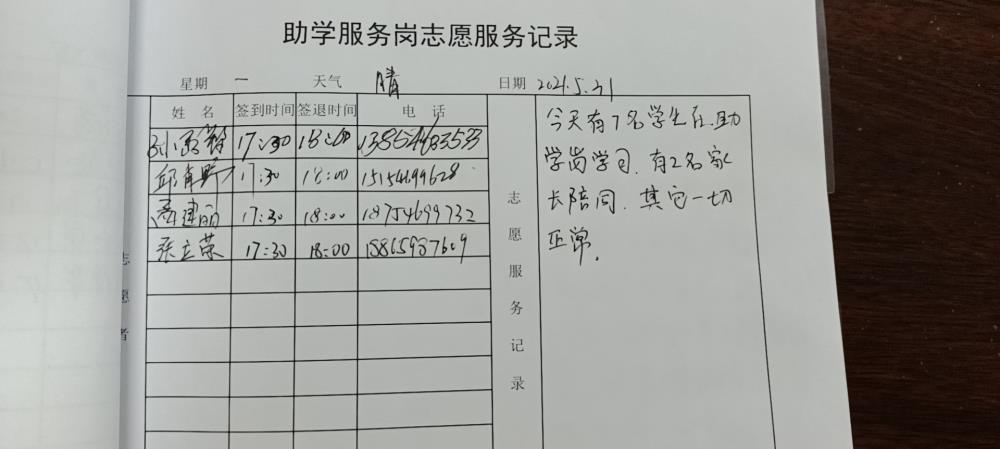 助学服务岗志愿服务记录
星期 一 天气 晴 日期 2021.5.31
姓名 签到时间 签退时间 电话
17:30 18:00 13854683533
17:30 18:00 15154699628
建丽 17:30 18:00 18754699732
张立荣 17:30 18:00 15865987609
志愿者
志愿服务记录
今天有7名学生在助
学岗学习.有2名家
长陪同.其它一切
正常.